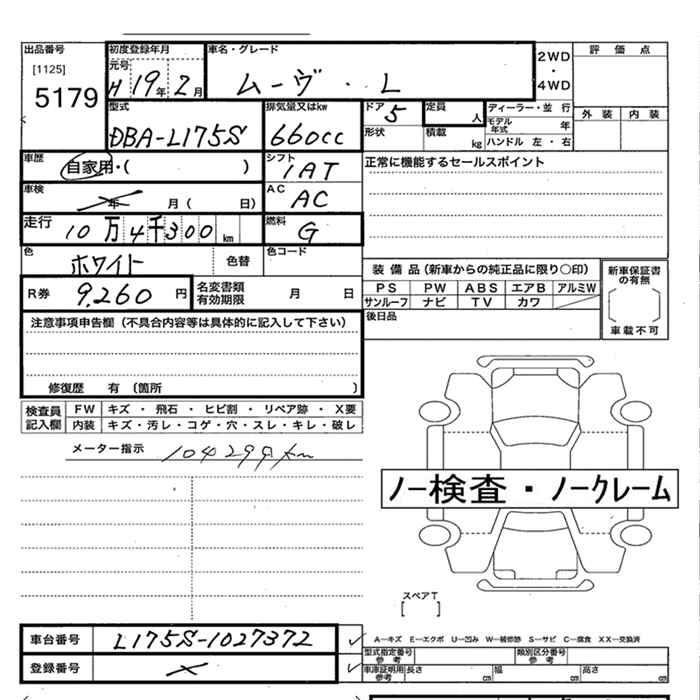 出品番号
[1125]
5179
初度登録年月
元号
H 19年 2月
車名・グレード
ムーヴ・L
2WD
・
4WD
評価点
外装 内装
型式
DBA-L175S
排気量又はkw
660cc
ドア
5
形状
定員
人
積載
kg
ディーラー・並行
モデル年式 年
ハンドル 左・右
車歴
自家用・( )
シフト
IAT
正常に機能するセールスポイント
車検
年 月( 日)
AC
AC
走行
10万4千300km
燃料
G
色
ホワイト
色替
色コード
R券 9,260円
名変書類
有効期限
月 日
装備品(新車からの純正品に限り○印)
PS PW ABS エアB アルミW
サンルーフ ナビ TV カワ
新車保証書
の有無
車載不可
後日品
注意事項申告欄(不具合内容等は具体的に記入して下さい)
修復歴 有(箇所 )
検査員
記入欄
FW キズ・飛石・ヒビ割・リペア跡・X要
内装 キズ・汚レ・コゲ・穴・スレ・キレ・破レ
メーター指示 104299km
ノー検査・ノークレーム
スペアT
[ ]
車台番号 L175S-1027372
登録番号 ×
A－キズ E－エクボ U－凹み W－補修跡 S－サビ C－腐食 XX－交換済
型式指定番号
参考
類別区分番号
参考
車庫証明用
参考
長さ cm 幅 cm 高さ cm